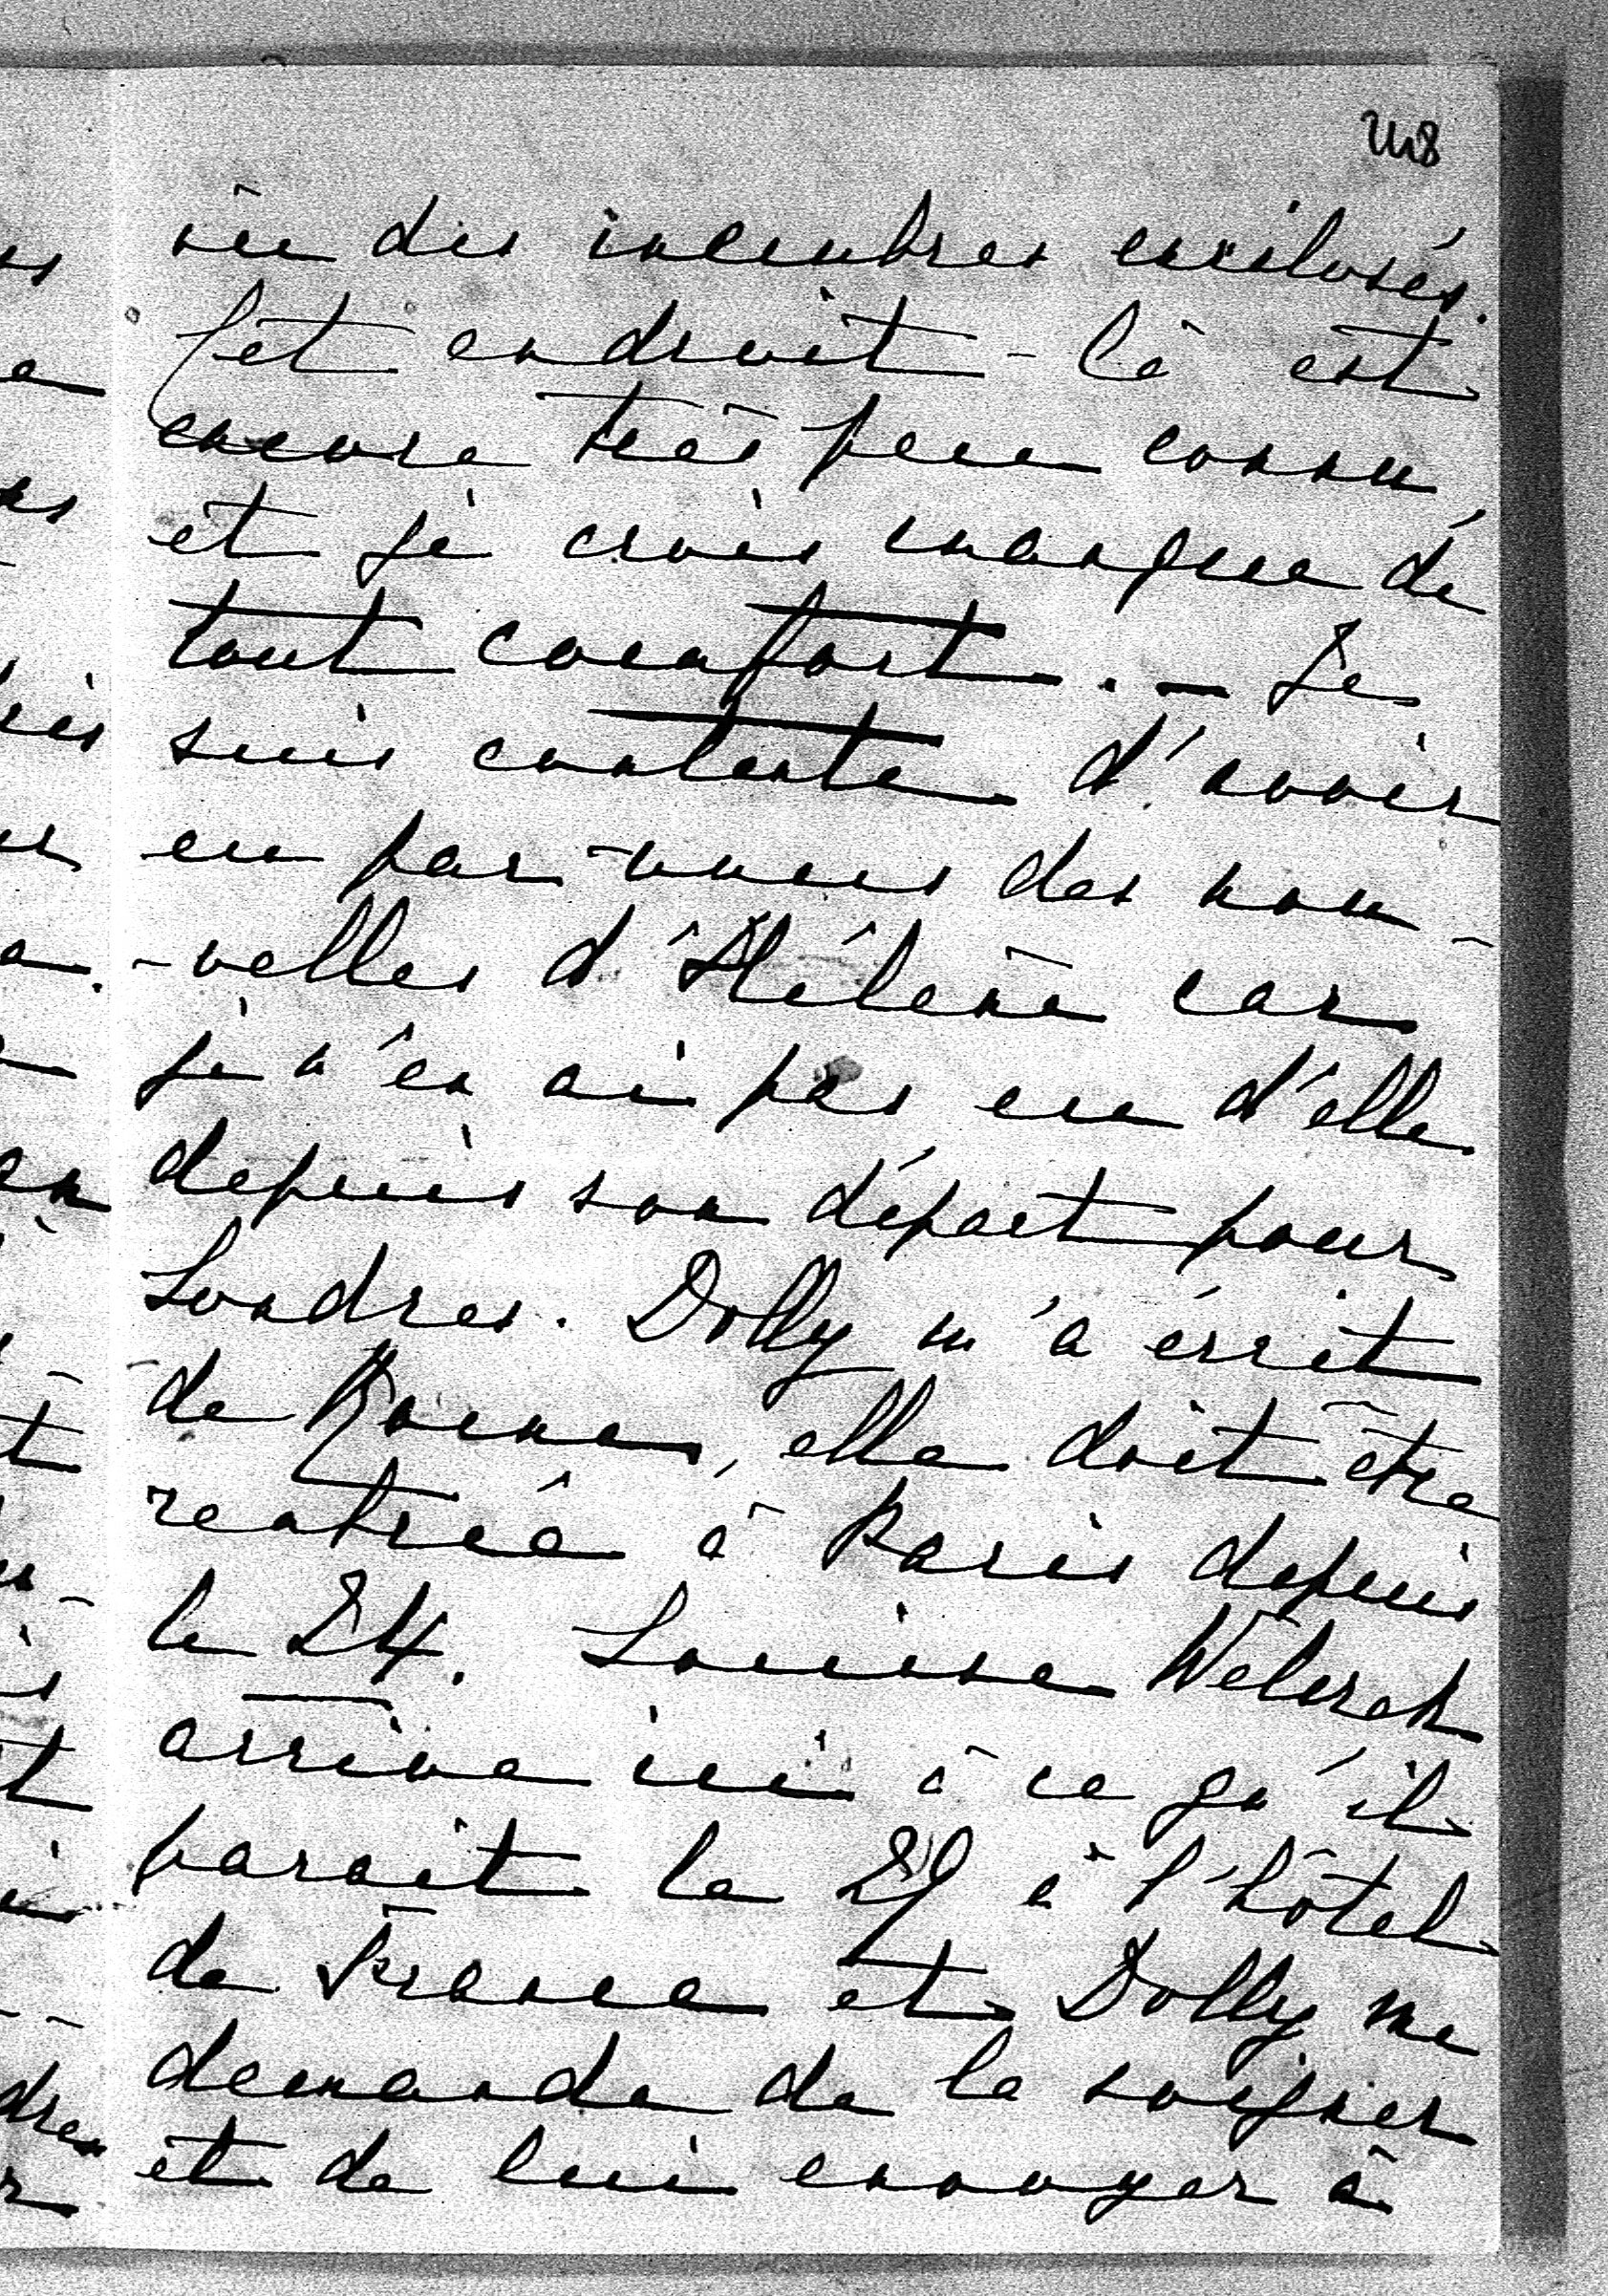 des membres
Cet endroit-là est
encore très peu connu
et je crois manque de
tout confort. — Je
suis contente d'avoir
eu par vous des nou-
-velles d'Hélène car
je n'en ai pas eu d'elle
depuis son départ pour
Londres. Dolly m'a écrit
de Rome, elle doit être
rentrée à Paris depuis
le 24. Louise
arrive ici à ce qu'il
parait le 29 à l'hôtel
de France et Dolly me
demande de la soigner
et de lui envoyer à